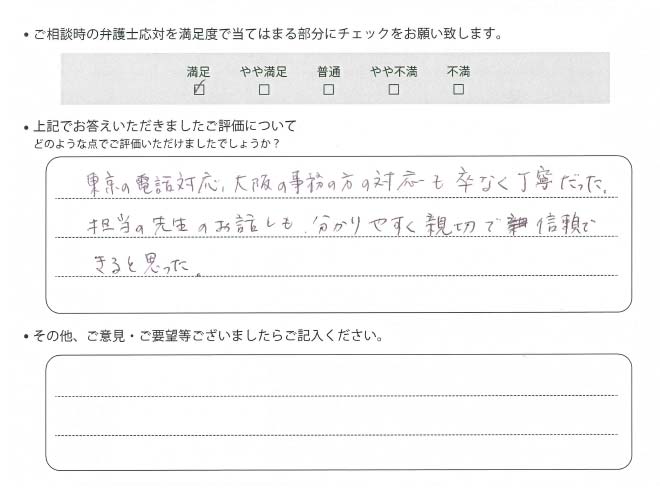 • ご相談時の弁護士応対を満足度で当てはまる部分にチェックをお願い致します。
満足 やや満足 普通 やや不満 不満
☑ □ □ □ □
• 上記でお答えいただきましたご評価について
どのような点でご評価いただけましたでしょうか？
東京の電話対応、大阪の事務の方の対応も卒なく丁寧だった。
担当の先生のお話しも分かりやすく親切で信頼で
きると思った。
• その他、ご意見・ご要望等ございましたらご記入ください。